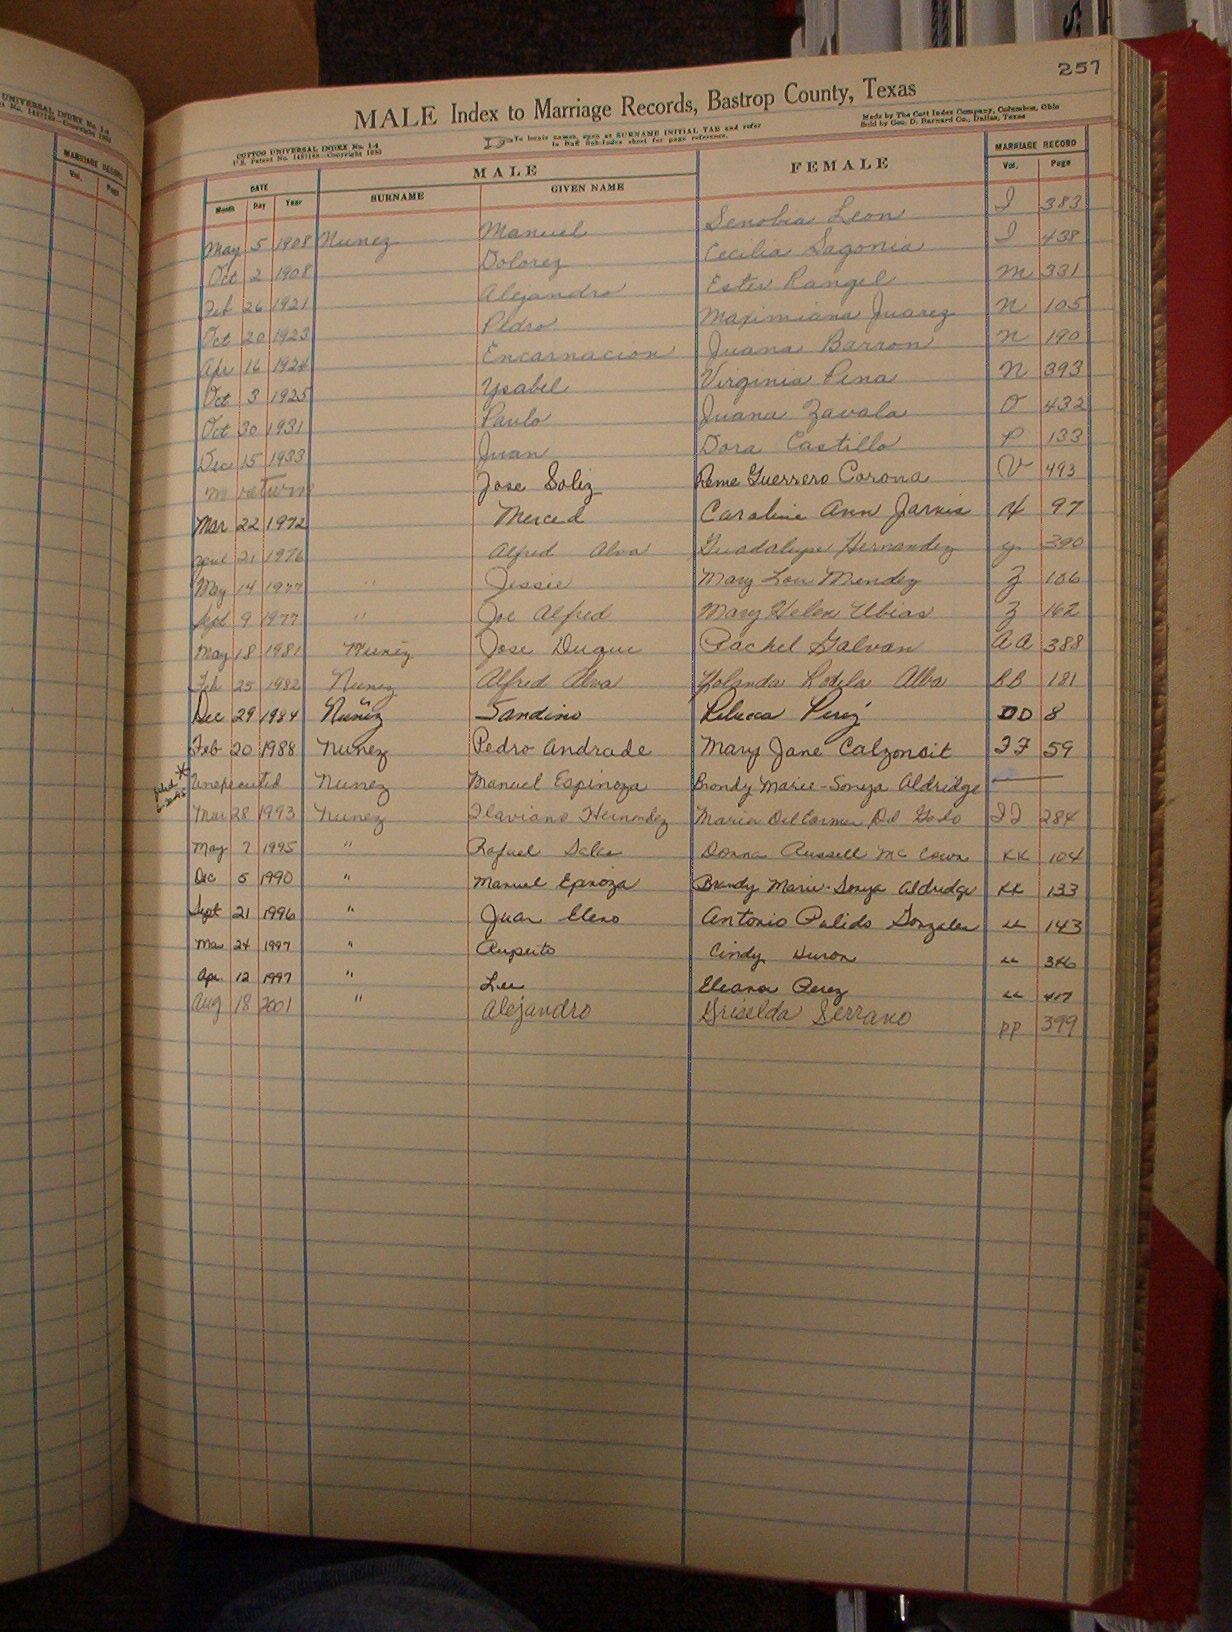 257
MALE Index to Marriage Records, Bastrop County, Texas
COTTCO UNIVERSAL INDEX No. 1-4
To locate names, open at SURNAME INITIAL TAB and refer
Made by The Cott Index Company, Columbus, Ohio
Sold by Geo. D. Barnard Co., Dallas, Texas
UNIVERSAL INDEX No. 1-4
MARRIAGE RECORD
Vol. Page
DATE MALE FEMALE MARRIAGE RECORD
Month Day Year SURNAME GIVEN NAME Vol. Page
May 5 1908 Nunez Manuel Senobia Leon I 383
Oct 2 1908 Dolorez Cecilia Sagonia I 438
Feb 26 1921 Alejandro Ester Rangel M 331
Oct 20 1923 Pedro Maximiana Juarez N 105
Apr 16 1924 Encarnacion Juana Barron N 190
Oct 3 1925 Ysabel Virginia Pena N 393
Oct 30 1931 Paulo Juana Zavala O 432
Dec 15 1933 Juan Dora Castillo P 133
return Jose Soliz Reme Guerrero Corona V 493
Mar 22 1972 Merced Caroline Ann Jarvis X 97
April 21 1976 Alfred Alva Guadalupe Hernandez Y 390
May 14 1977 " Jessie Mary Lou Mendez Z 106
Sept 9 1977 " Joe Alfred Mary Helen Ubias Z 162
May 18 1981 Nunez Jose Duque Rachel Galvan AA 388
Feb 25 1982 Nunez Alfred Alva Yolanda Rodela Alba BB 181
Dec 29 1984 Nuñez Sandino Rebecca Perez DD 8
Feb 20 1988 Nunez Pedro Andrade Mary Jane Calzoncit FF 59
Unexecuted Nunez Manuel Espinoza Brandy Marie-Sonya Aldridge
Mar 28 1993 Nunez Flaviano Hernandez Maria Del Carmen Del II 284
May 7 1995 " Rafael Donna Russell McCown KK 104
Dec 5 1990 " Manuel Epnoza Brandy Marie-Sonya Aldridge KK 133
Sept 21 1996 " Juan Eleno Antonio Pulido Gonzales LL 143
Mar 24 1997 " Ruperto Cindy Huron LL 346
Apr 12 1997 " Lee Eleanor Perez LL 417
Aug 18 2001 " Alejandro Griselda Serrano PP 399